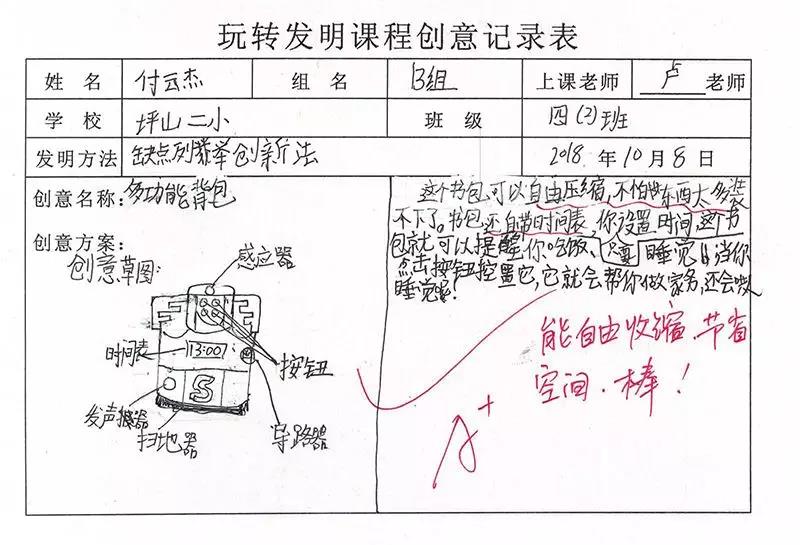 玩转发明课程创意记录表
姓名 付云杰 组名 B组 上课老师 卢 老师
学校 坪山二小 班级 四(2)班
发明方法 缺点列举创新法 2018.年10月8日
创意名称:多功能背包
创意方案:
创意草图:
感应器
时间表
13:00
按钮
S
发声器
扫地器
导路器
这个书包可以自由压缩,不怕东西太多装
不下了。书包还自带时间表,你设置时间,这个书
包就可以提醒你吃饭、睡觉
点击按钮控置它,它就会帮你做家务,还会
睡觉
能自由收缩.节省
空间.棒!
A+